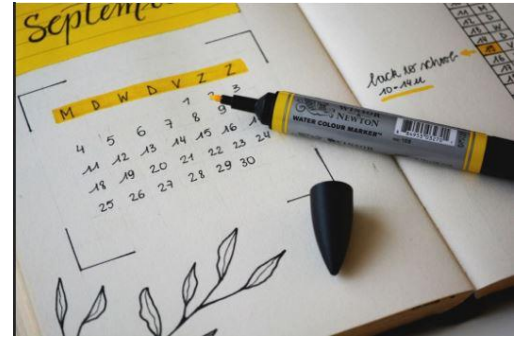 September
M D W D V Z Z
1 2 3
4 5 6 7 8 9
11 12 13 14 15 16
18 19 20 21 22 23 24
25 26 27 28 29 30
back to school
10-14u
WINSOR
NEWTON
WATER COLOUR MARKER™